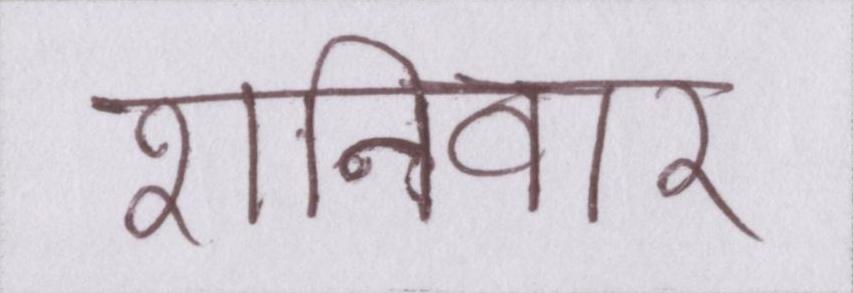 शनिवार